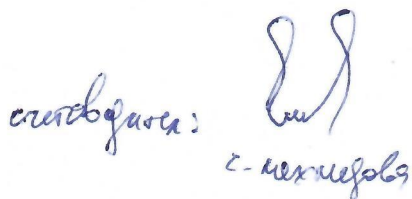 счетоводител:
с. мехмедова